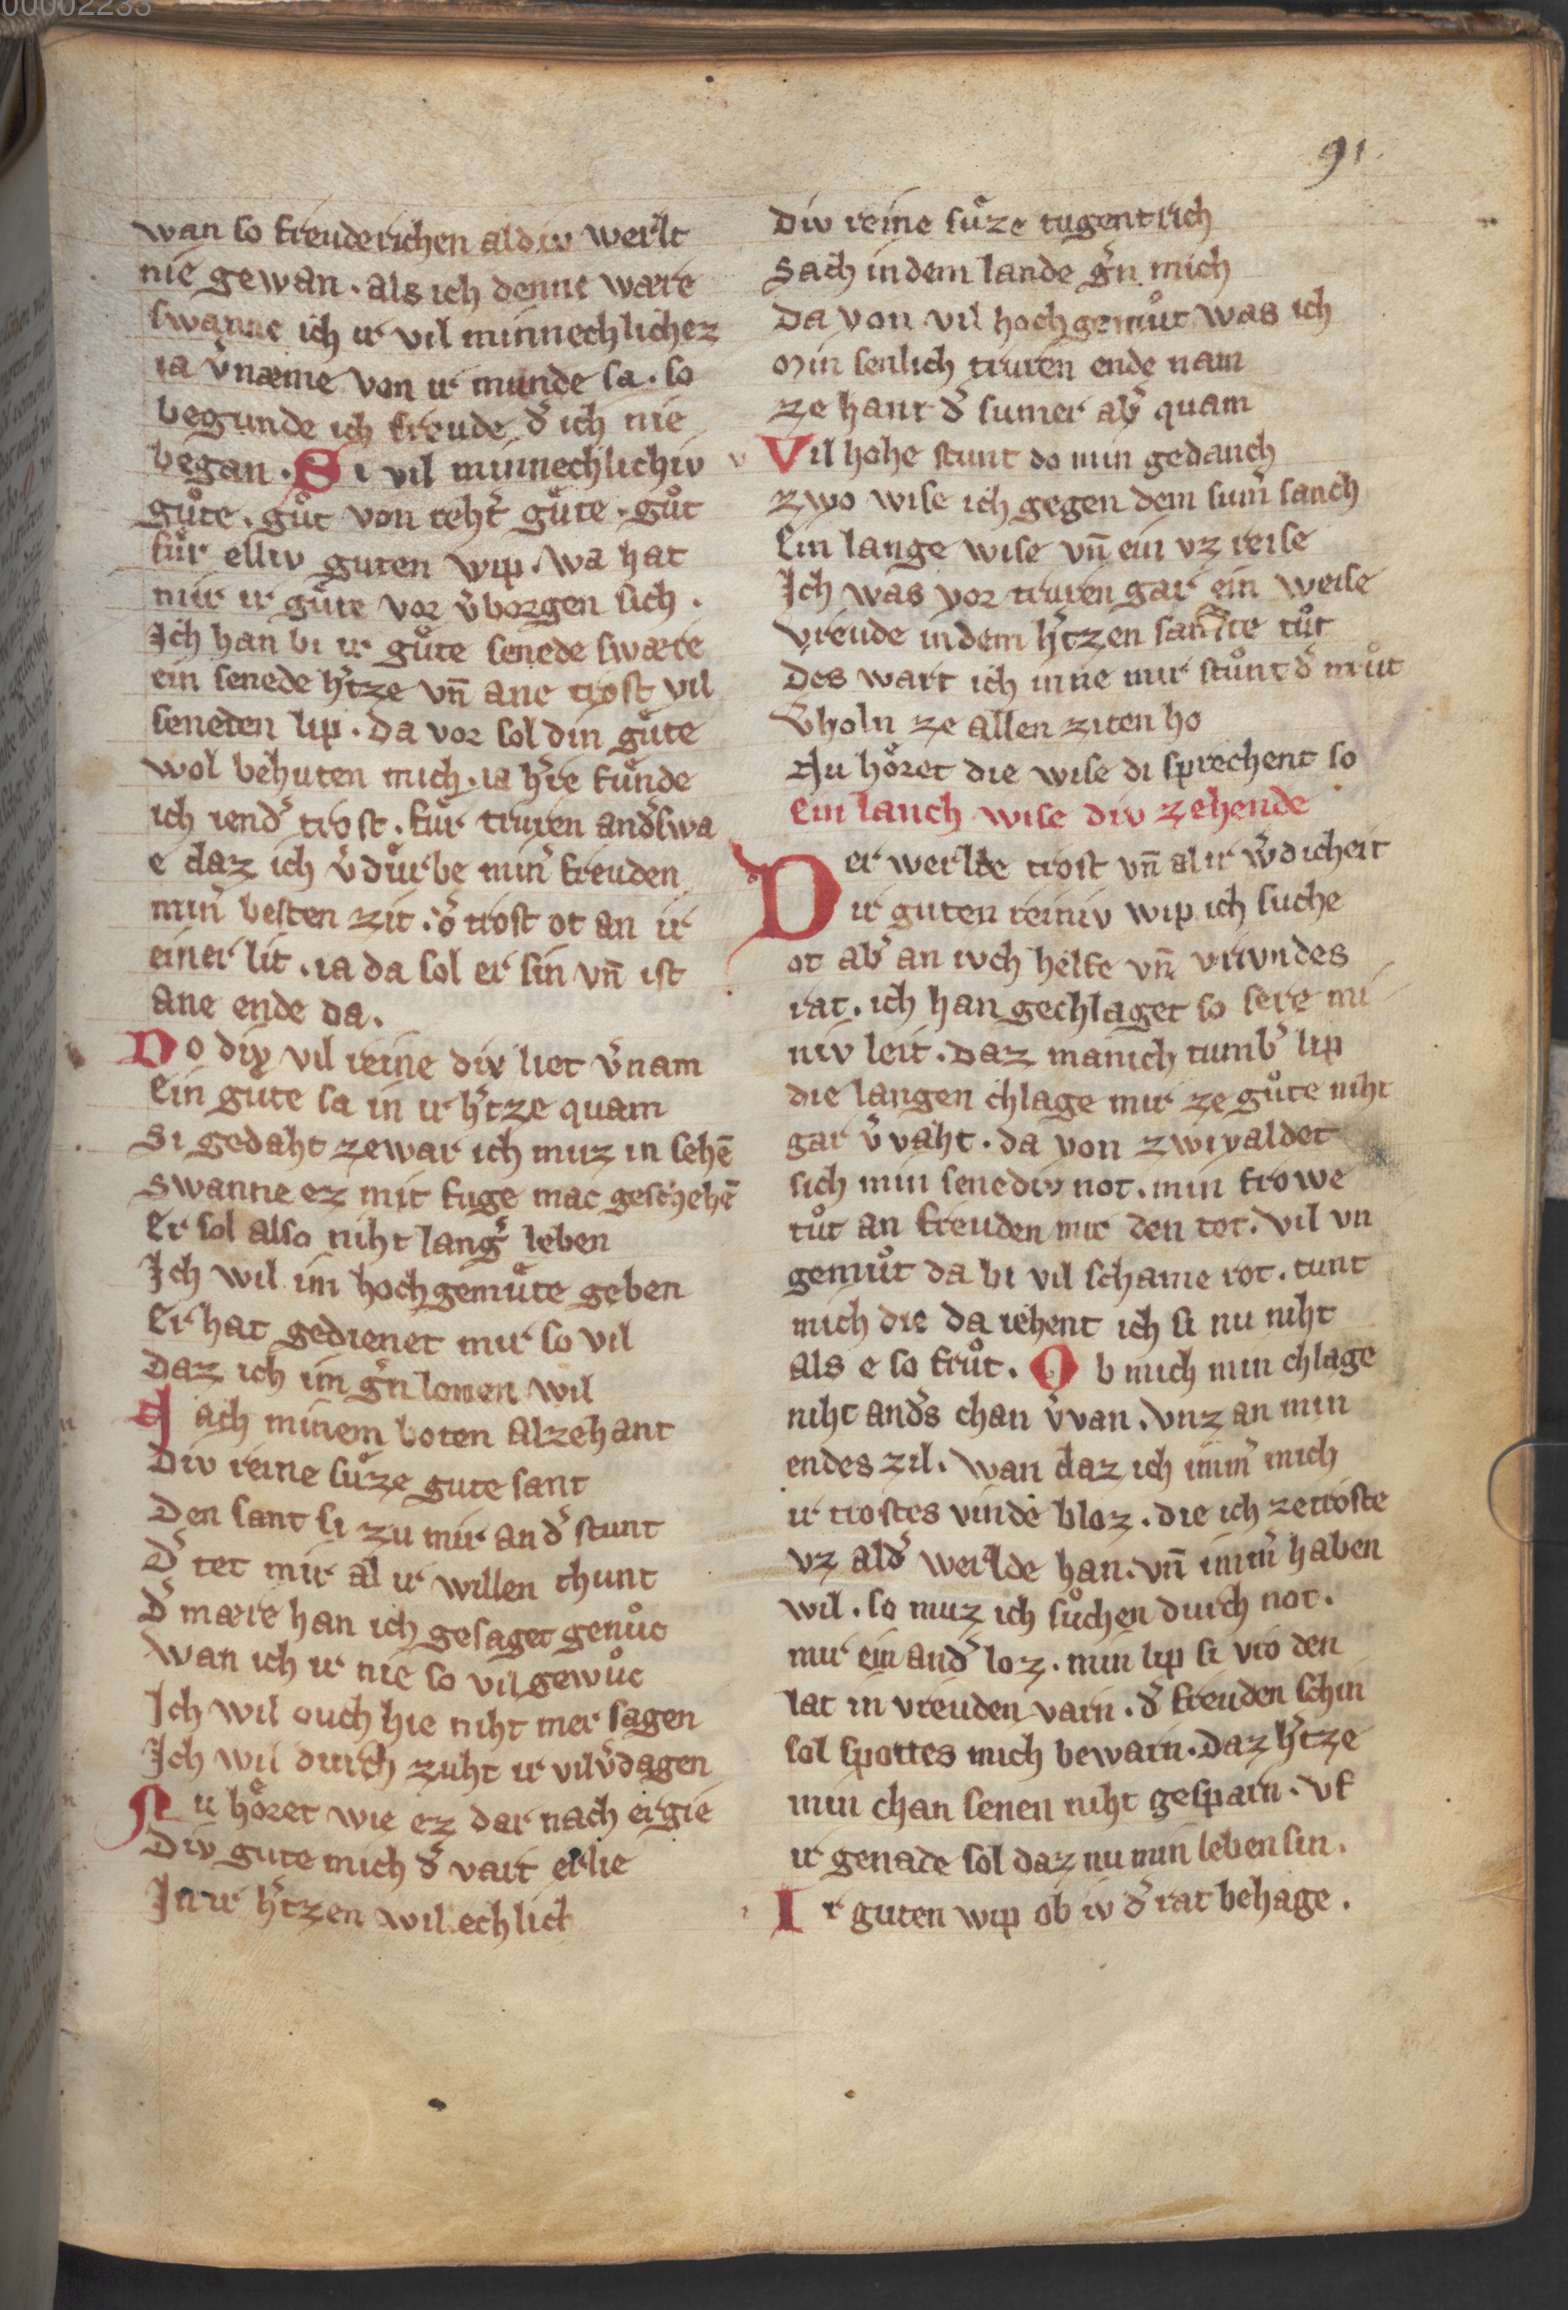 00002233
91
wan so freuderichen al div werlt
nie gewan . als ich denne wære
swanne ich ir vil minnechlichez
ia v̾næme von ir munde sa . so
begunde ich freude d̾ ich nie
began . Si vil minnechlichiv
guͤte . guͦt von reht̾ guͤte . guͦt
fuͤr elliv guten wip . wa hat
mir ir guͤte vor v̾borgen sich .
Ich han bi ir guͤte senede swære
ein senede h̾tze vn̄ ane trost vil
seneden lip . da vor sol din guͤte
wol behuten mich . ia h̾re funde
ich iend̾ trost . fuͤr truren and̾swa
e daz ich v̾duͤrbe min̾ freuden
min̾ besten zit . d̾ trost ot an ir
einer lit . ia da sol er sin vn̄ ist
ane ende da .
Do div vil reine div liet v̾nam
Ein gute sa in ir h̾tze quam
Si gedaht zewar ich muz in sehē
Swanne ez mit fuge mac geschehē
Er sol also niht lang̾ leben
Ich wil im hochgemuͤte geben
Er hat gedienet mir so vil
Daz ich im g̾n lonen wil
Nach minem boten alzehant
Div reine suͤze gute sant
Den sant si zu mir an d̾ stunt
D̾ tet mir al ir willen chunt
D̾ mære han ich gesaget genuͦc
Wan ich ir nie so vil gewuͦc
Ich wil ouch hie niht mer sagen
Ich wil durch zuht ir vil v̾dagen
Nu hoͤret wie ez dar nach ergie
Div gute mich d̾ vart erlie
In ir h̾tzen willechlich
Div reine suͤze tugentrich
Sach in dem lande g̾n mich
Da von vil hochgemuͦt was ich
Min senlich truren ende nam
ze hant d̾ sumer ab̾ quam
Vil hohe stunt do min gedanch
zwo wise ich gegen dem sum̾ sanch
Ein lange wise vn̄ ein vz reise
Ich was vor truren gar ein weise
Vreude in dem h̾tzen sanfte tuͦt
Des wart ich inne mir stuͦnt d̾ muͦt
V̾holn ze allen ziten ho
Nu hoͤret die wise di sprechent so
Ein lanch wise div zehende
Der werlde trost vn̄ al ir w̾dicheit
ir guten reiniv wip ich suche
ot ab̾ an ivch helfe vn̄ vrivndes
rat . ich han gechlaget so sere mi
niv leit . daz manich tumb̾ lip
die langen chlage mir ze guͤte niht
gar v̾vaht . da von zwivaldet
sich min senediv not . min frowe
tuͦt an freuden mir den tot . vil vn
gemuͦt da bi vil schame rot . tunt
mich die da iehent ich si nu niht
als e so fruͦt . Ob mich min chlage
niht and̾s chan v̾van . vnz an min
endes zil . wan daz ich imm̾ mich
ir trostes vinde bloz . die ich ze troste
vz al d̾ werlde han . vn̄ imm̾ haben
wil . so muz ich suͦchen durch not .
mir ein and̾ loz . min lip si vro den
lat in vreuden varn . d̾ freuden schin
sol spottes mich bewarn . daz h̾tze
min chan senen niht gesparn . vf
ir genade sol daz nu min leben sin .
Ir guten wip ob iv d̾ rat behage .